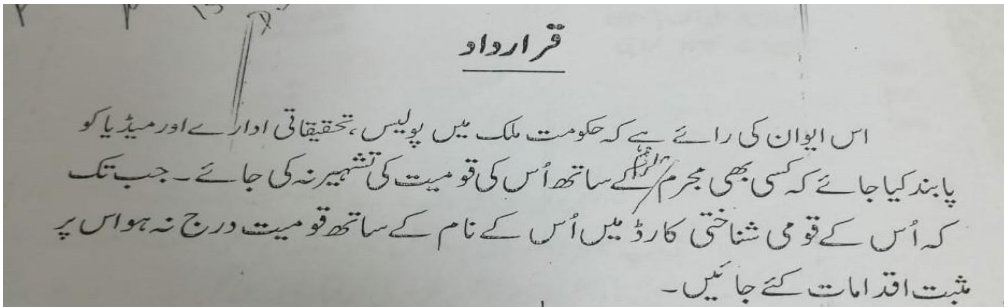 قرارداد
اس ایوان کی رائے ہے کہ حکومت ملک میں پولیس، تحقیقاتی ادارے اور میڈیا کو
پابند کیا جائے کہ کسی بھی مجرم کے ساتھ اُس کی قومیت کی تشہیر نہ کی جائے۔ جب تک
کہ اُس کے قومی شناختی کارڈ میں اُس کے نام کے ساتھ قومیت درج نہ ہو اس پر
مثبت اقدامات کئے جائیں۔